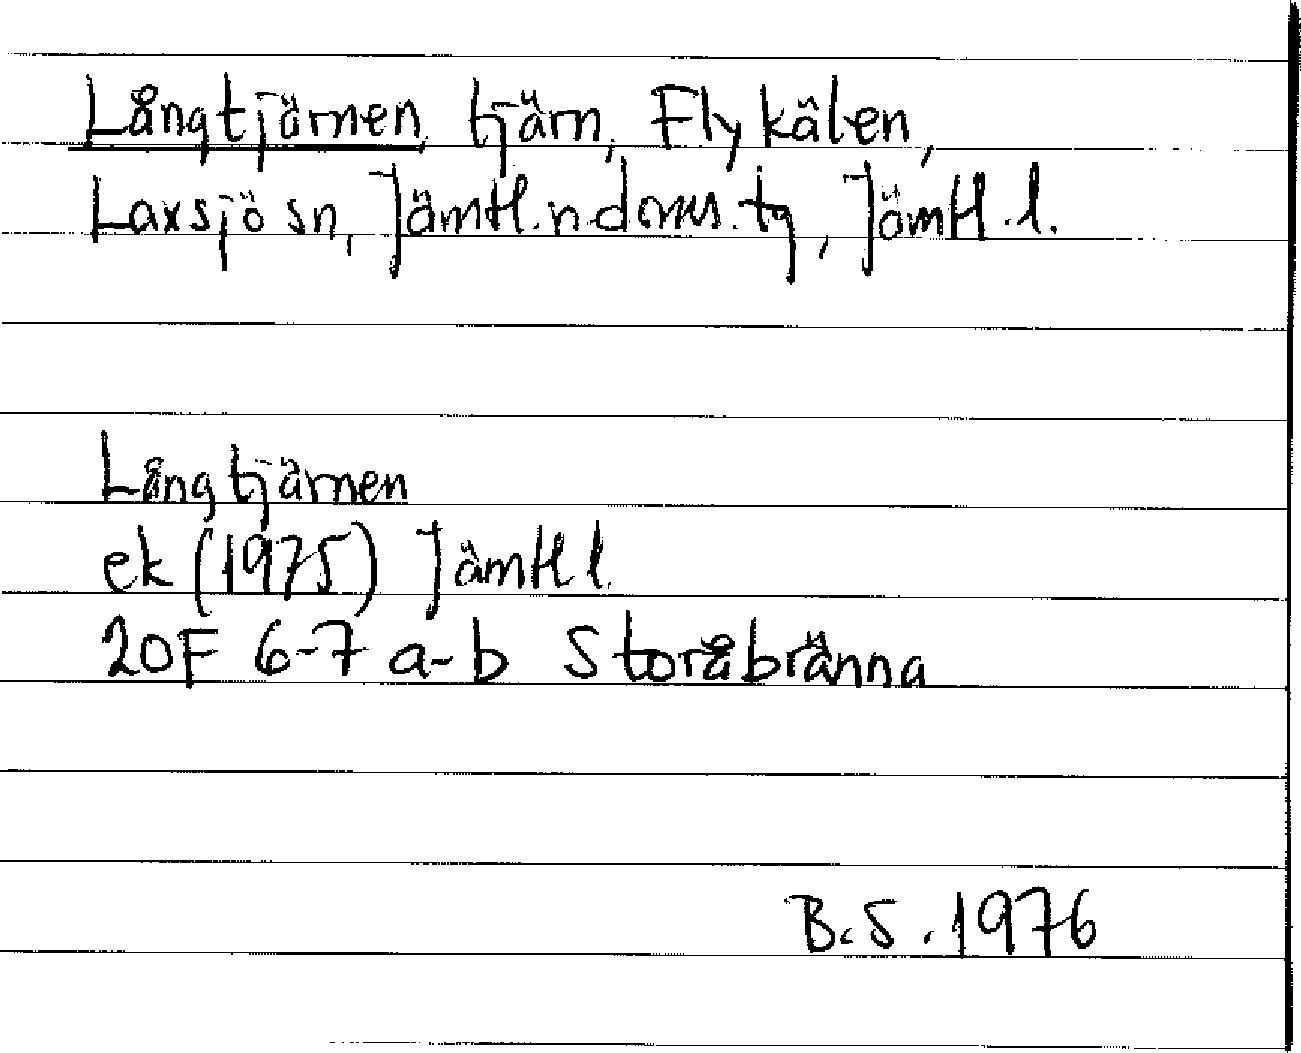 Långtjärnen, tjärn, Flykälen,
Laxsjö sn, Jämtl.n.doms.tg, Jämtl.l.
Långtjärnen
ek (1975) Jämtl l.
20F 6-7 a-b Storåbränna
B.S. 1976